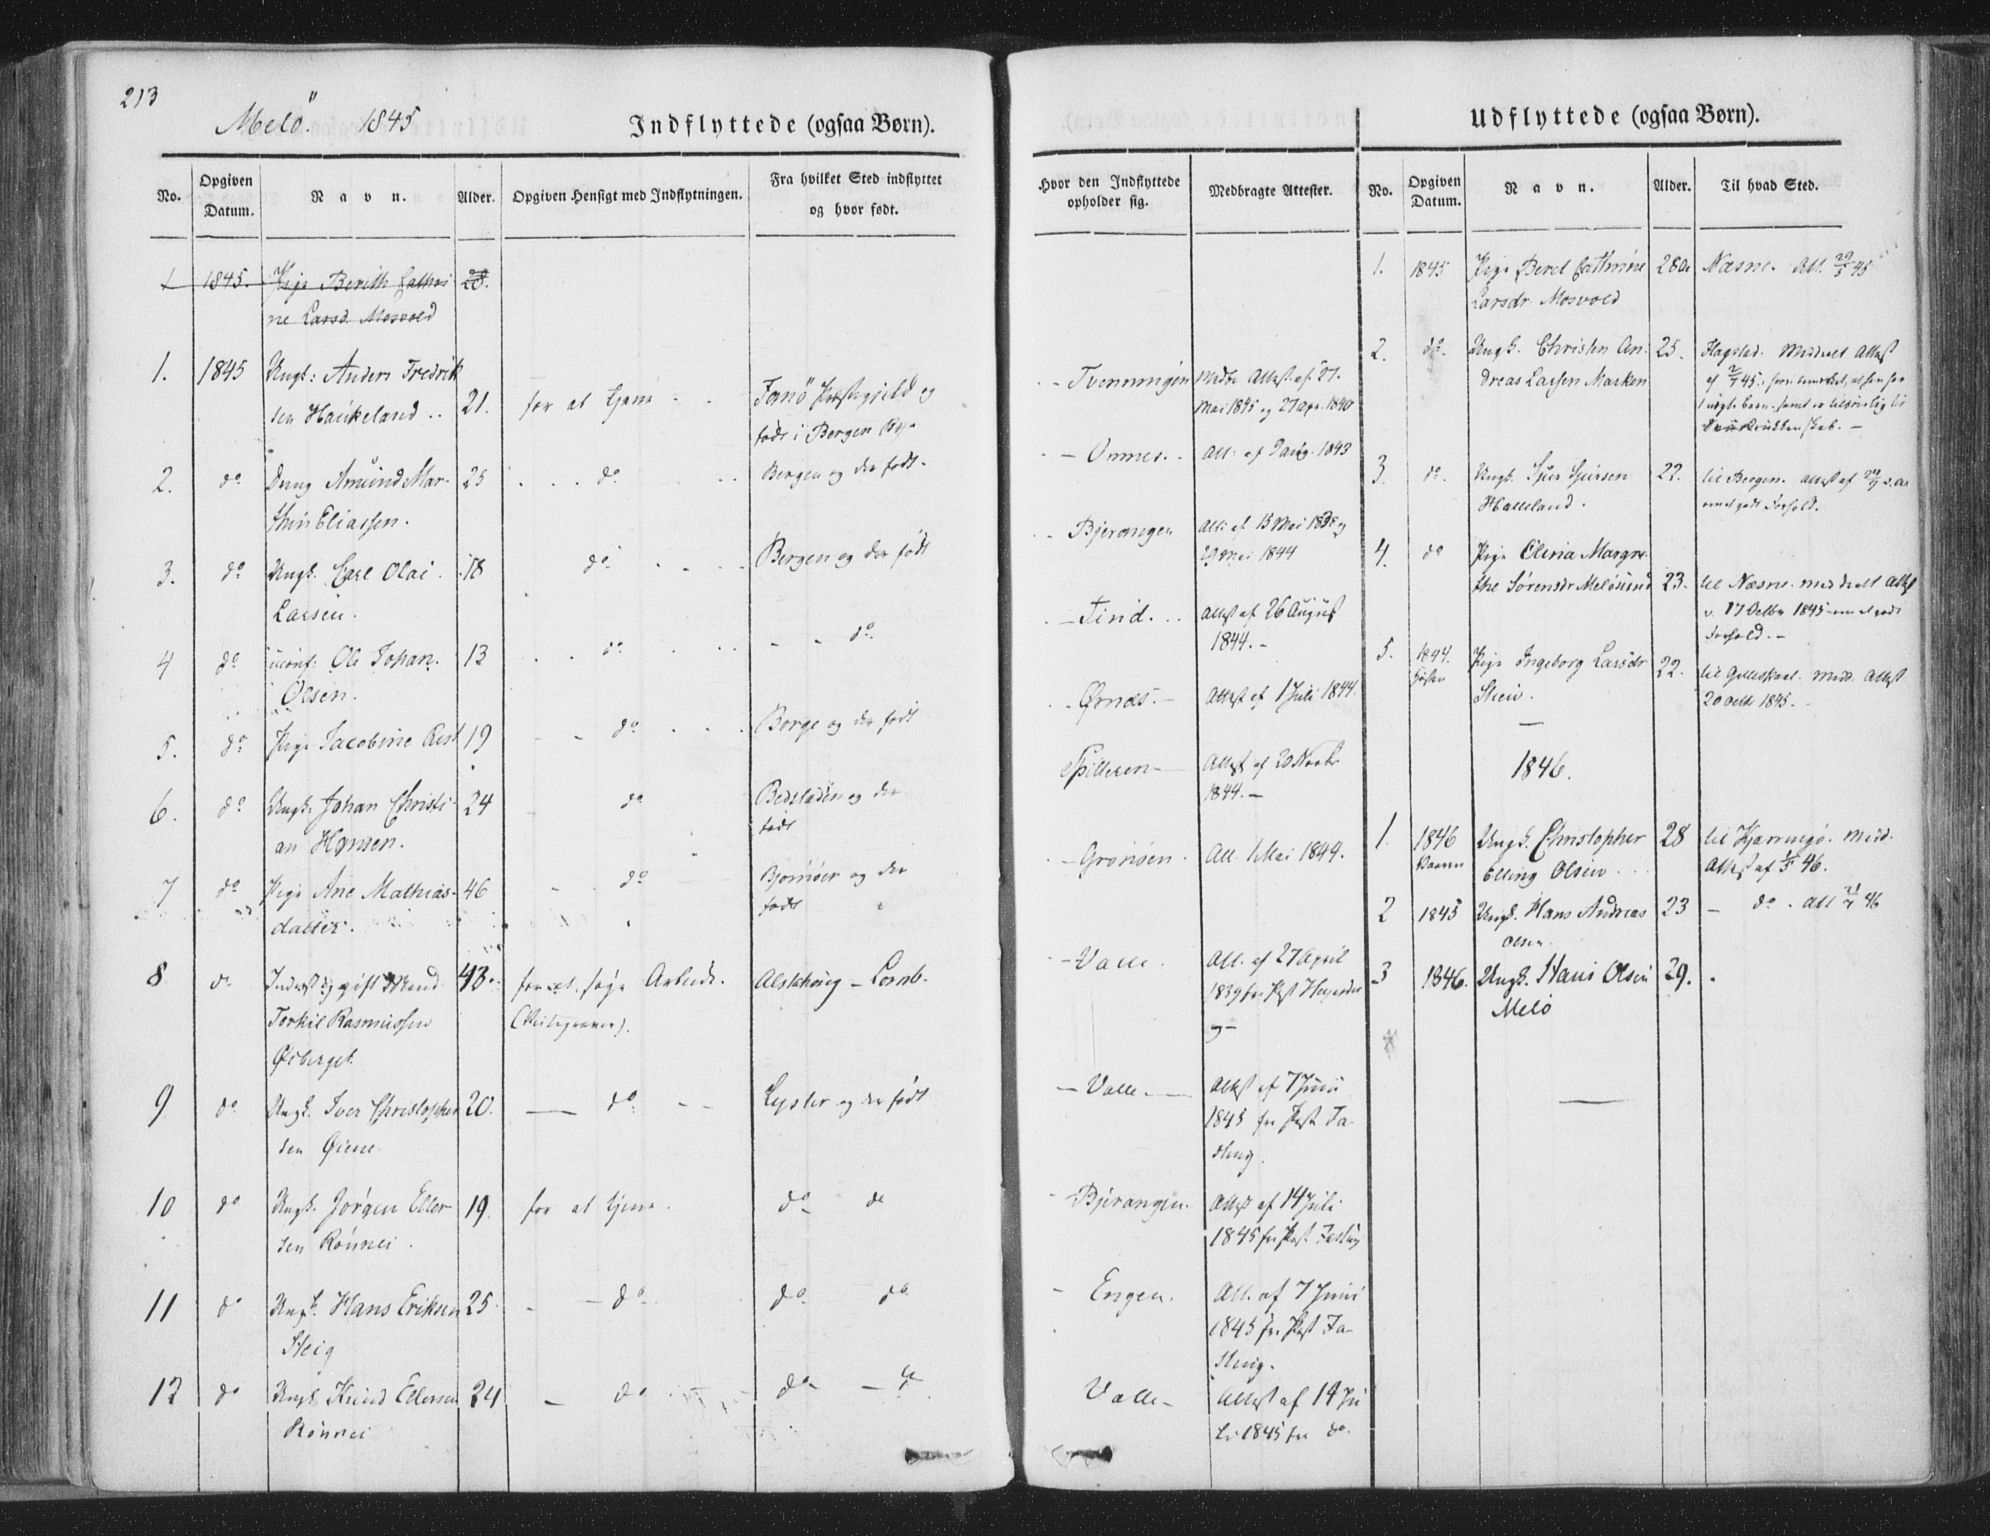 213
Melö 1845
Indflyttede (ogsaa Børn).
No.
Opgiven Datum.
Navn.
Alder.
Opgiven Hensigt med Indflytningen.
Fra hvilket Sted indflyttet og hvor født.
1 1845. Pige Berith Cathri 28.
ne Larsd. Mosvold
1. 1845 Ungk: Anders Fredrik
sen Haukeland .. 21. for at tjene Fanö Præstegjeld og
født i Bergen
2. do Dreng Amund Mar- 25 do Bergen og der født.
thin Eliassen.
3. do Ungk. Carl Olai 18 do Bergen og der født
Larsen.
4 do uconf: Ole Johan 13 do do
Olsen.
5. do Pige Jacobine 19 do Borge og der født
6. do Ungk. Johan Christi- 24 do Bedstaden og der
an Hansen. født
7 do Pige Ane Mathias- 46 do Bjørnöer og der
datter. født
8 do Inderst og gift Mand 43. for at søge Arbeide. Alstahoug - Lomb.
Torkil Rasmussen
Øiberget.
9 do Ungk. Iver Christopher 20. do Lyster og der født
sen Øiene.
10 do Ungk. Jörgen Eller- 19 for at tjene. do do
sen Rönnei.
11 do Ungk. Hans Eriksen 25 do do do
Steig
12 do Ungk. Knud Ellersen 24 do do
Rönnei
Hvor den Indflyttede opholder sig.
Medbragte Attester.
Tvenningen Medbr Attest af 27.
Mai 1845 og 27 Apr. 1840
Onnes. Att: af 1843
Bjerangen Att: af 13 Mai 1838 og
29 Mai 1844
Tind. Attest af 26 August
1844.-
Ørnæs.- Attest af 1 Juli 1844.
Spilderen- Attest af 20 Novbr
1844.-
Grønöen. Att. 1 Mai 1844.
Valle. Att. af 27 April
1839 fra Past
og-
Valle. Attest af 7 Juni
1845 fra Past. Fa-
sting.
Bjerangen. Attest af 14 Juli
1845 fra Past. Fasting
Engen. Att. af 7 Juni
1845 fra Past Fa-
sting.
Valle- Attest af 14 Ju
li 1845 fra do.
Udflyttede (ogsaa Børn).
No.
Opgiven Datum.
Navn.
Alder.
Til hvad Sted.
1. 1845 Pige Beret Cathrine 28 Næsne. Att. 29/5 45
Larsdr Mosvold
2. do. Ungk. Christen An- 25. Flagstad. Meddelt Attest
dreas Larsen Marken
3. do. Ungk. Sjur Sjursen 22. til Bergen. Attest af
Halleland.
4. do Pige Elena Margre-
the Sörensdr Melösund 23. til Næsne. meddelt Attest
v. 17 Octbr 1845 om et godt
Forhold.-
5. 1844. Pige Ingeborg Larsdr 22. til Gilleskaal. Medd. Attest
Høsten Steen. 20 Octbr 1845.
1846.
1. 1846 Ungk. Christopher 28 til Kjærringö. Medd.
Vaaren Elling Olsen Attest af 46.
2 1845 Ungk. Hans Andreas 23 - do. Att 46
Olsen
3 1846. Ungk. Hans Olsen 29.
Melö